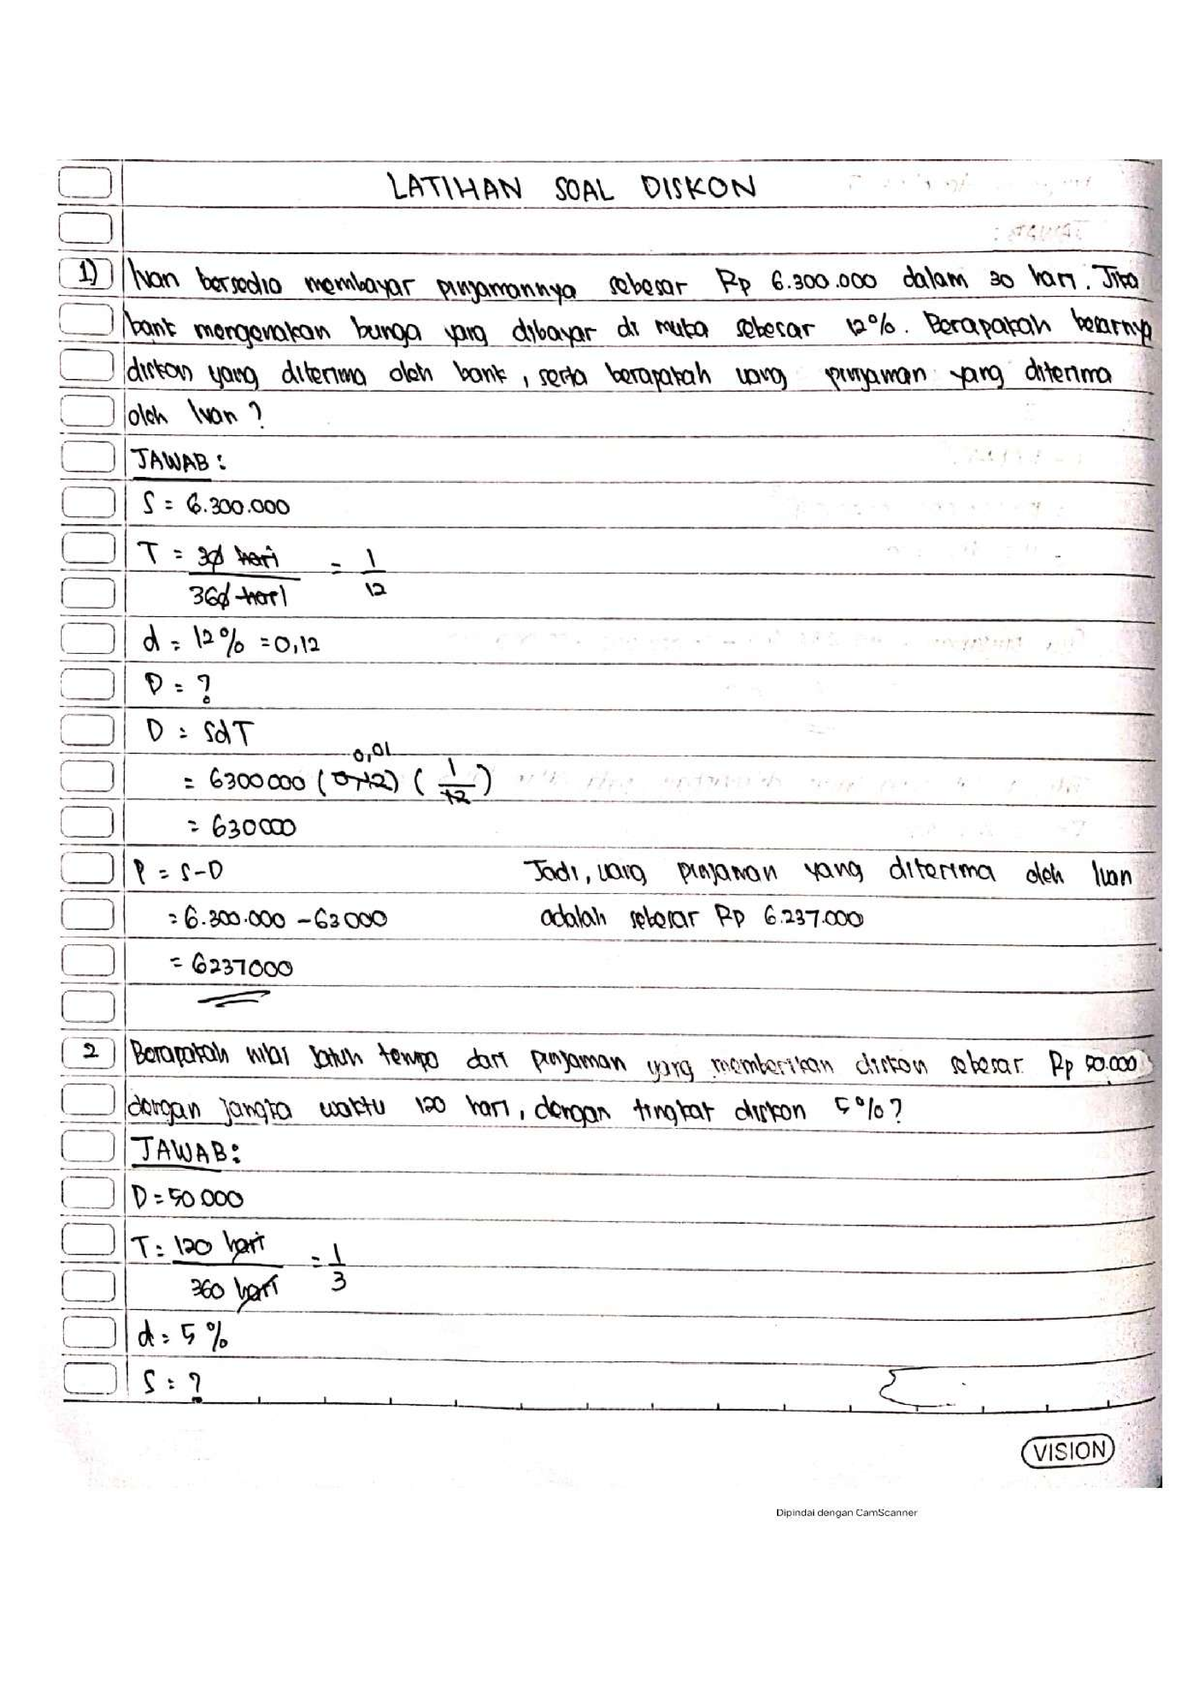 LATIHAN SOAL DISKON
1) Ivan bersedia membayar pinjamannya sebesar Rp 6.300.000 dalam 30 hari. Jika
bank mengenakan bunga yang dibayar di muka sebesar 12%. Berapakah besarnya
diskon yang diterima oleh bank, serta berapakah uang pinjaman yang diterima
oleh Ivan?
JAWAB:
S = 6.300.000
T = 30 hari / 360 hari = 1/12
d = 12% = 0,12
D = ?
D = SdT
0,01
= 6300000 (0,12) (1/12)
= 630000
P = S-D Jadi, uang pinjaman yang diterima oleh Ivan
= 6.300.000 - 63000 adalah sebesar Rp 6.237.000
= 6237000
2 Berapakah nilai jatuh tempo dari pinjaman yang memberikan diskon sebesar Rp 50.000
dengan jangka waktu 120 hari, dengan tingkat diskon 5%?
JAWAB:
D = 50.000
T = 120 hari / 360 hari = 1/3
d = 5%
S = ?
VISION
Dipindai dengan CamScanner